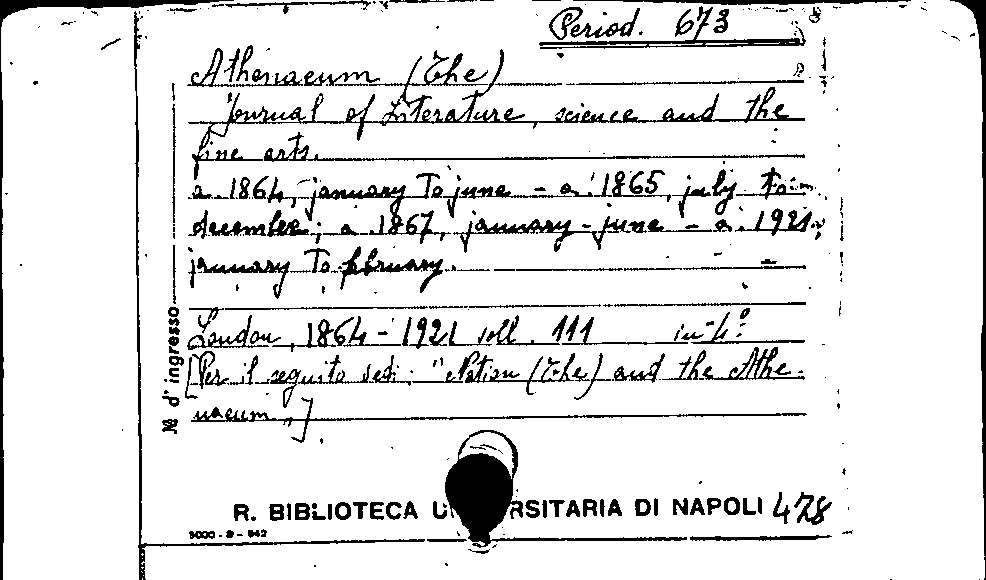 Period. 673
Athenaeum (The)
Journal of Literature, science and the
fine arts.
a. 1864, january to june - a. 1865, july to
december; a. 1867, january - june - a. 1921,
january to february.
London, 1864 - 1921 voll. 111 in-4º
[Per il seguito vedi: "Nation (The) and the Athe-
naeum"]
№ d'ingresso
R. BIBLIOTECA UN RSITARIA DI NAPOLI 478
5000 - 9 - 942